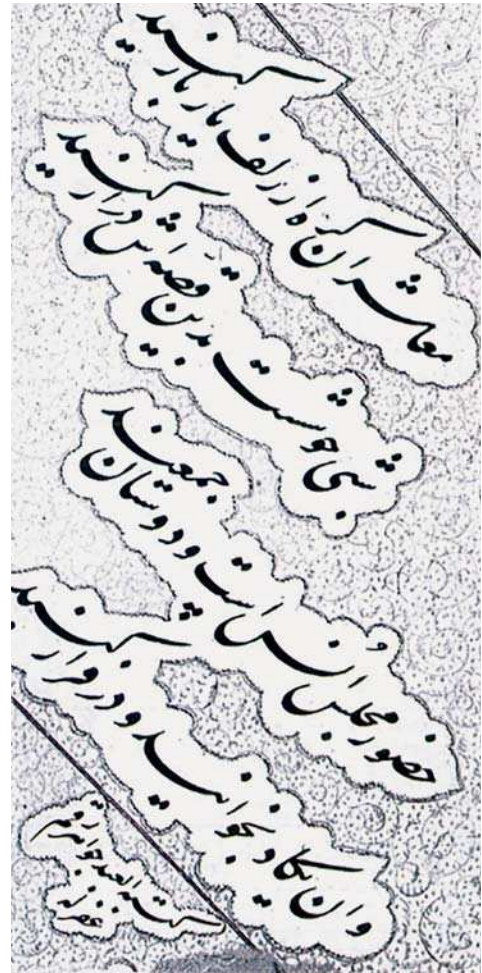 معاشران گره از زلف یار باز کنید
شبی خوشست بدین قصه اش دراز کنید
حضور مجلس انس است و دوستان جمعند
وان یکاد بخوانید و در فراز کنید
کتبه العبد جواهر رقم
غفر له